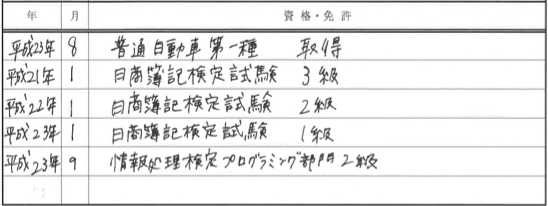 年 月 資格・免許
平成23年 8 普通自動車第一種 取得
平成21年 1 日商簿記検定試験 3級
平成22年 1 日商簿記検定試験 2級
平成23年 1 日商簿記検定試験 1級
平成23年 9 情報処理検定プログラミング部門2級